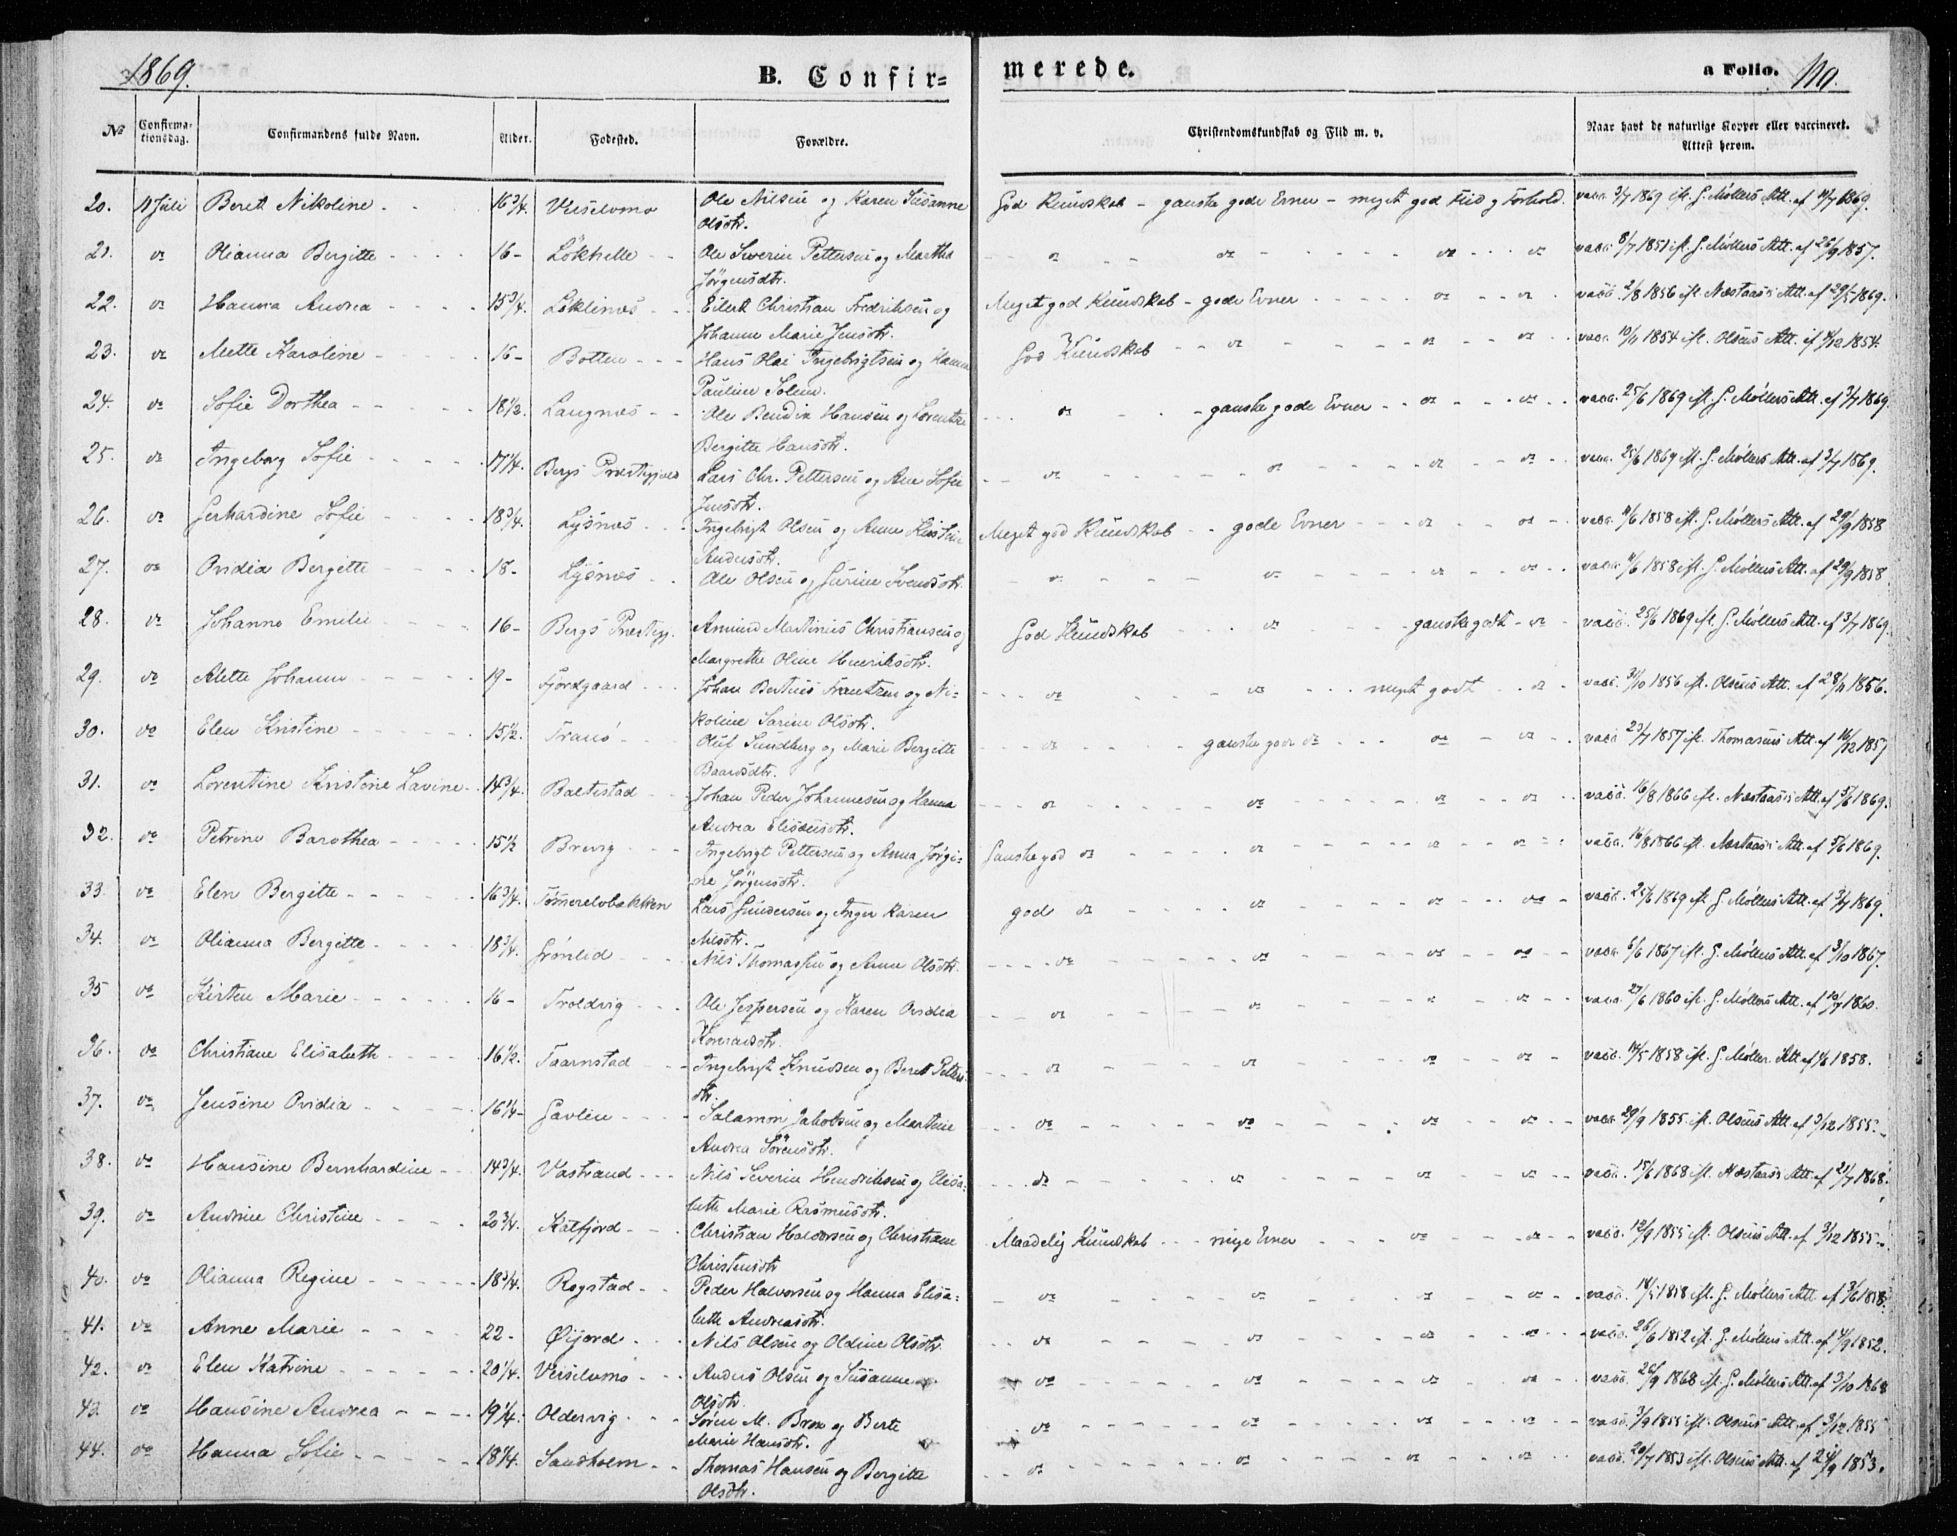 1869.
B. Confir=
merede.
a Folio. 110.
No
Confirma-
tionsdag.
Confirmandens fulde Navn.
Alder.
Fødested.
Forældre.
Christendomskundskab og Flid m. v.
Naar havt de naturlige Kopper eller vaccineret.
Attest herom.
20. 11 Juli Beret Nikoline 16 3/4. Veiselvmo Ole Nilsen og Karen Susanne God Kundskab - ganske gode Evner - meget god Flid og Forhold. vacc. 3/7 1869 ifl. G. Møllers Att. af 10/7 1869.
Olsdtr.
21. do Olianna Bergitte 16 - Løkhelle Ole Severin Pettersen og Martha do do do do vacc. 8/7 1851 ifl. G. Møllers Att. af 26/9 1857.
Jørgensdtr.
22. do Hanna Andrea 15 3/4. Leiklines Eilert Christian Fredriksen og Meget god Kundskab - gode Evner do do vacc. 2/8 1856 ifl. Næstaas's Att. af 29/5 1869.
Johanne Marie Jensdtr.
23. do Mette Karoline 16 - Botten Hans Olai Ingebrigtsen og Hanna God Kundskab do do do vacc. 10/11 1854 ifl. Olsens Att. af 4/12 1854.
Pauline Solem.
24. do Sofie Dorthea 18 1/2. Laugnes Ole Bendix Hansen og Lorentze do ganske gode Evner do do vacc. 25/6 1869 ifl. G. Møllers Att. af 3/7 1869.
Bergitte Hansdtr.
25. do Ingeborg Sofie 17 1/4. Bergs Præstegjæld Lars Chr. Pettersen og Ane Sofie do do do do vacc. 25/6 1869 ifl. G. Møllers Att. af 3/7 1869.
Jensdtr.
26. do Gerhardine Sofie 18 3/4. Lysnes Ingebrigt Olsen og Anne Kirstine Meget god Kundskab gode Evner do do vacc. 11/6 1858 ifl. G. Møllers Att. af 29/9 1858
Andersdtr.
27. do Ovidia Bergitte 18 - Lysnes Ole Olsen og Gurine Svendsdtr. do do do do vacc. 11/6 1858 ifl. G. Møllers Att. af 29/9 1858
28. do Johanna Emilie 16 - Bergs Præstegj. Amund Martinius Christiansen og God Kundskab do ganske godt do vacc. 25/6 1869 ifl. G. Møllers Att. af 3/7 1869.
Margrethe Oline Henriksdtr.
29. do Alette Johanna 19 - Fjordgaard Johan Bertius Frantzen og Ni- do do meget godt do vacc. 31/10 1856 ifl. Olsens Att. af 28/11 1856.
koline Sarine Olsdtr.
30. do Elen Kristine 15 1/2. Tranø Oluf Sundberg og Marie Bergitte do ganske gode do do do vacc. 23/7 1857 ifl. Thomasens Att. af 16/12 1857
Baardsdtr.
31. do Lorentine Kristine Lavine 14 3/4. Baltestad Johan Peder Johannesen og Hanna do do do do vacc. 16/8 1866 ifl. Næstaas's Att. af 5/6 1869.
Andrea Eliseusdtr.
32. do Petrine Barothea 15 1/2 Brevig Ingebrigt Pettersen og Anna Jørgi- Ganske god do do do do vacc. 16/8 1866 ifl. Næstaas's Att. af 5/6 1869.
ne Jørgensdtr.
33. do Elen Bergitte 16 3/4. Tømmerelvbakken Lars Gundersen og Inger Karen god do do do do vacc. 25/6 1869 ifl. G. Møllers Att. af 3/7 1869.
Nilsdtr.
34. do Olianna Bergitte 18 3/4. Grønlid Nils Thomassen og Anne Olsdtr. do do do do vacc. 6/6 1867 ifl. G. Møllers Att. af 3/10 1867.
35 do Kirsten Marie 16 - Troldvig Ole Jespersen og Karen Ovidia do do do do vacc. 27/6 1860 ifl. G. Møllers Att. af 10/7 1860.
Konradsdtr.
36. do Christiane Elisabeth 16 1/2. Taarnstad Ingebrigt Knudsen og Beret Petters- do do do do vacc. 14/5 1858 ifl. G. Møllers Att. af 1/6 1858.
dtr.
37. do Jensine Ovidia 16 1/4 - Gavlen Salamon Jakobsen og Martine do do do do vacc. 29/9 1855 ifl. Olsens Att. af 3/12 1855.
Andrea Sørensdtr.
38. do Hansine Bernhardine 14 3/4. Vastrand Nils Severin Hendriksen og Elisa- do do do do vacc. 15/6 1868 ifl. Næstaas's Att. af 21/7 1868.
beth Marie Rasmusdtr.
39. do Andrine Christine 20 3/4. Katfjord Christian Halvorsen og Christiane Maadelig Kundskab - ringe Evner do do vacc. 12/9 1855 ifl. Olsens Att. af 3/12 1855.
Christensdtr
40. do Olianna Regine 18 3/4. Rogstad Peder Halvorsen og Hanna Elisa- do do do do vacc. 14/5 1858 ifl. G. Møllers Att. af 3/6 1858.
beth Andreasdtr.
41. do Anne Marie 22 - Øijord Nils Olsen og Oldine Olsdtr. do do do do vacc. 26/6 1852 ifl. G. Møllers Att. af 4/9 1852.
42. do Elen Katrine 20 1/4. Veiselvmo Anders Olsen og Susanne do do do do vacc. 26/9 1868 ifl. G. Møllers Att. af 3/10 1868
Olsdtr.
43. do Hansine Andrea 19 1/4. Oldervig Søren M. Brox og Berte do do do do vacc. 3/9 1855 ifl. Olsens Att. af 3/12 1855
Marie Hansdtr.
44. do Hanna Sofie 18 1/4. Sandholm Thomas Hansen og Bergitte do do do do vacc. 20/7 1853 ifl. Olsens Att. af 24/9 1853.
Olsdtr.